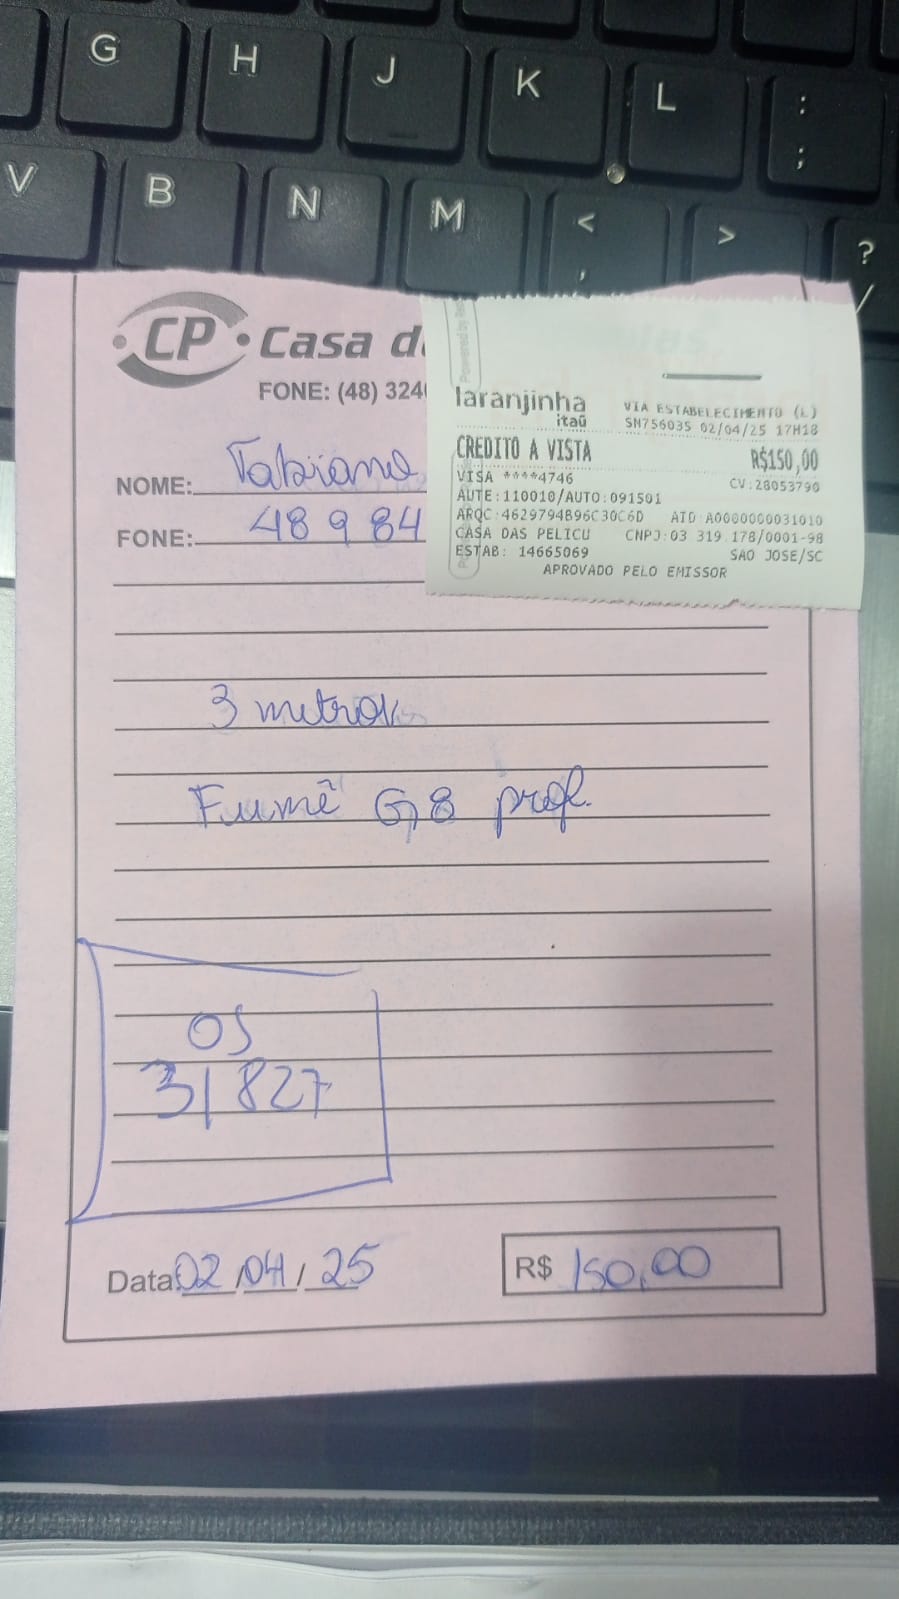 G H J K L : ;
V B N M < , > ? /
CP Casa d
FONE: (48) 324
NOME: Fabiano
FONE: 48 9 84
laranjinha
itaú
VIA ESTABELECIMENTO (L)
SN756035 02/04/25 17H18
CREDITO A VISTA R$150,00
VISA ****4746 CV:28053790
AUTE:110010/AUTO:091501
ARQC:4629794B96C30C6D AID:A0000000031010
CASA DAS PELICU CNPJ:03 319 178/0001-98
ESTAB: 14665069 SAO JOSE/SC
APROVADO PELO EMISSOR
3 metros
Fumê G8 prof.
OS
31827
Data: 02/04/25
R$ 150,00